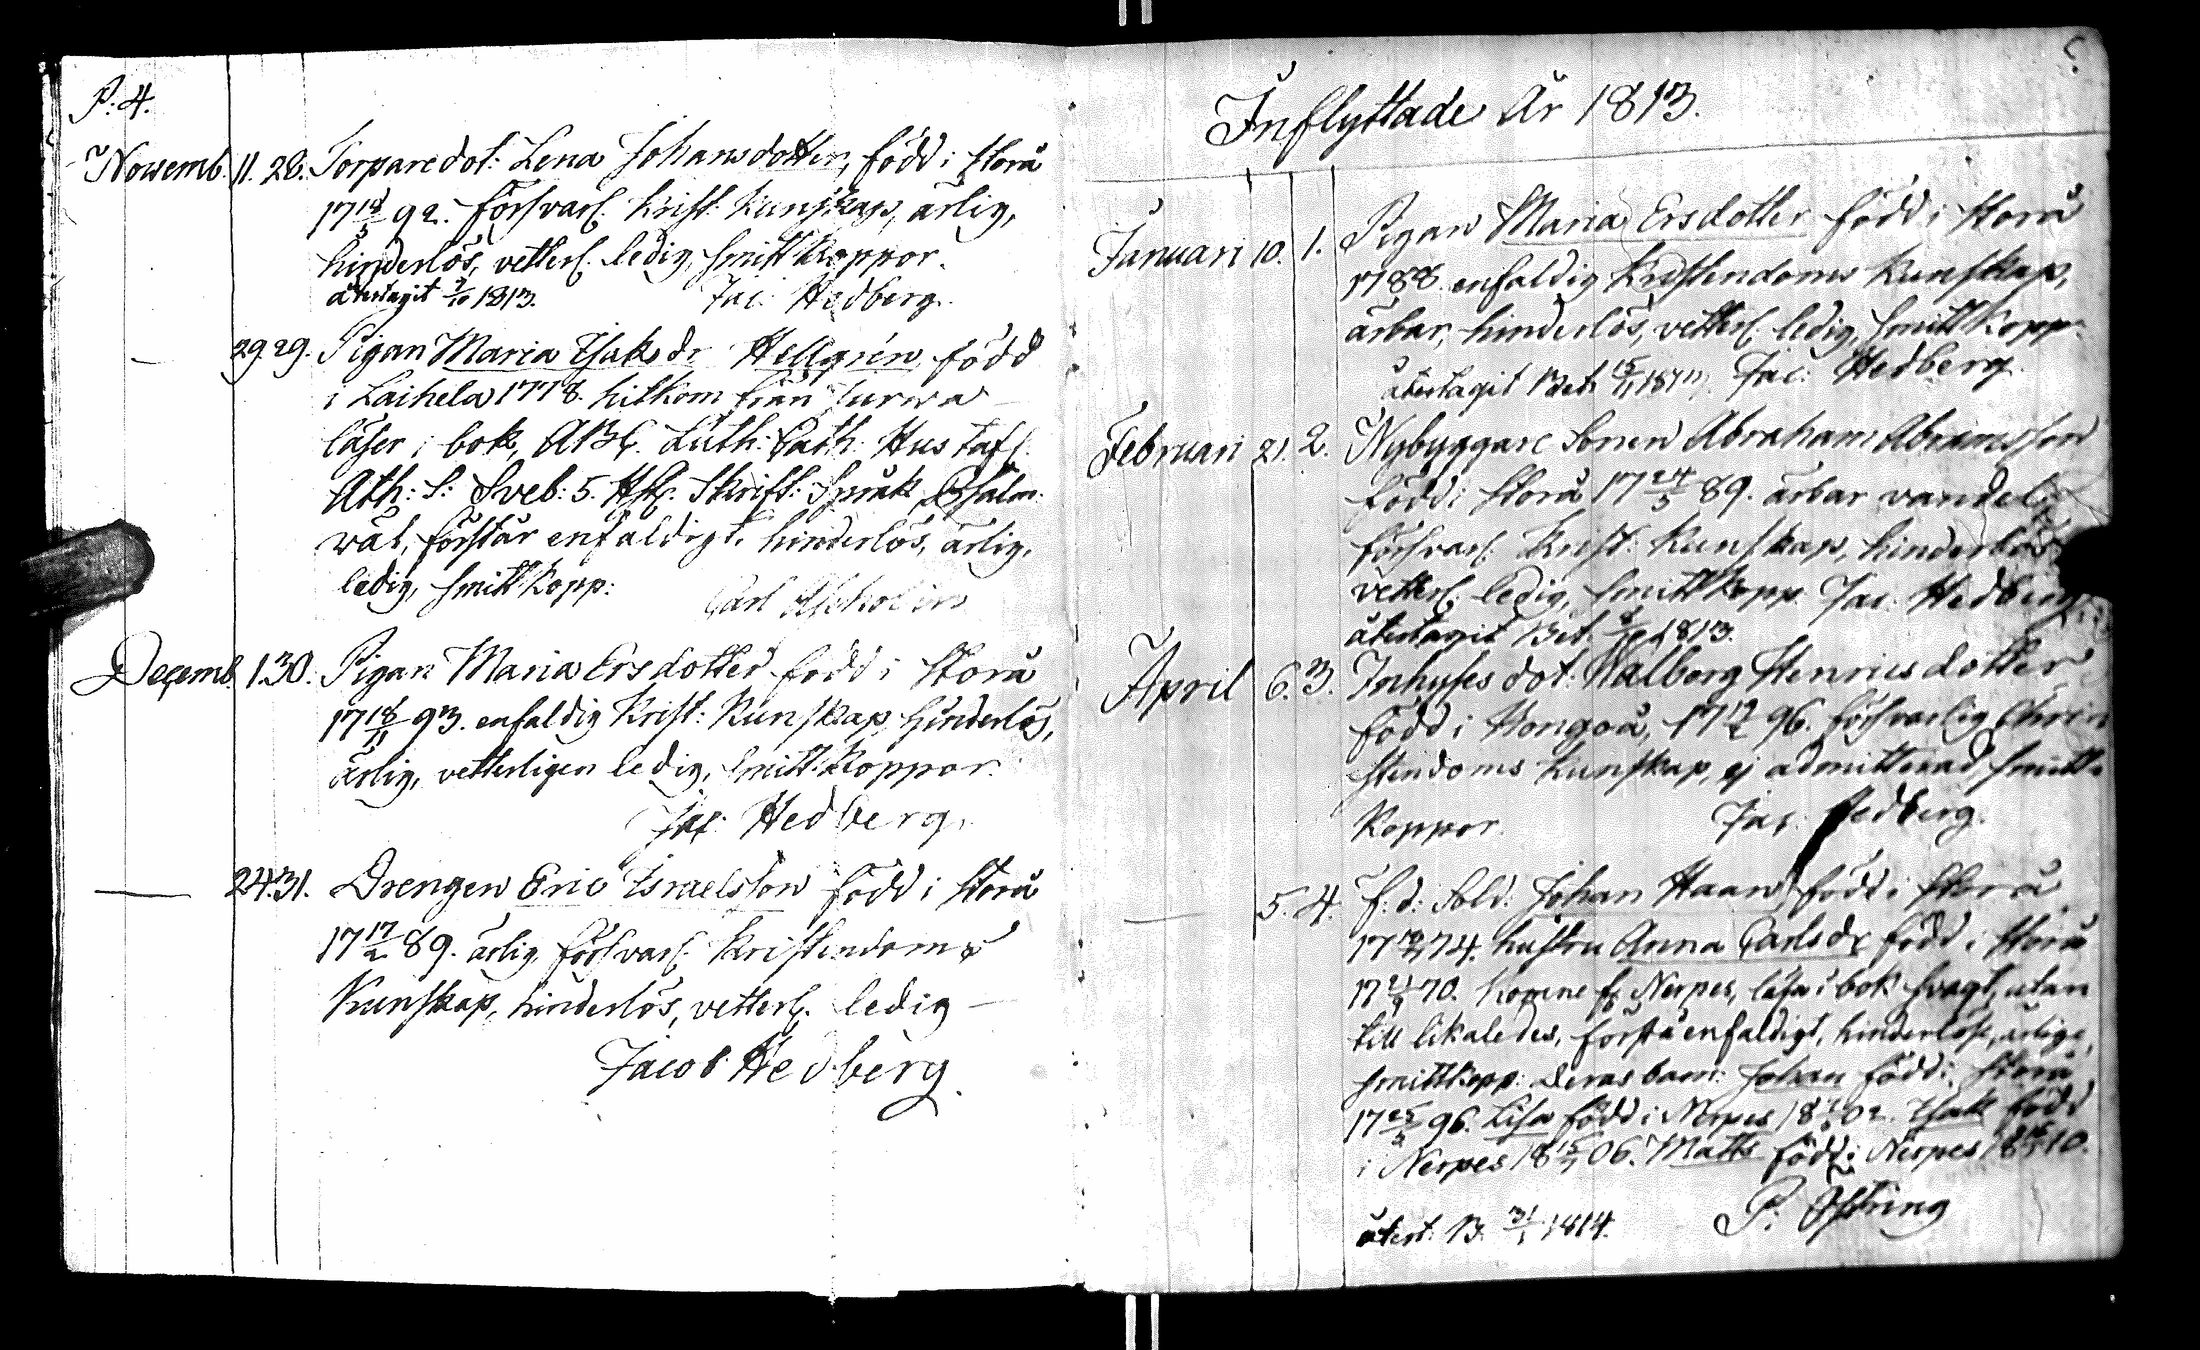 P. 4.
Nowemb. 11. 28. Torpare dot: Lena Johansdotter, född i Storå
17 18/5 92. försvarl. Krist: Kunskap, ärlig,
hinderlös, vetterl. ledig, smittkoppor.
återtagit 7/10 1813. Jac: Hedberg.
— 29. 29. Pigan Maria Isaksdr Hellgrén, född
i Laihela 1778. hitkom från Jurwa
läser i bok, ABC. Luth: Cath: Hustafl.
Ath: S: Sveb: 5. Hfst. Skrift: Språk Psalm:
wäl, förstår enfaldigt. hinderlös, ärlig,
ledig, smittkopp: Carl
Decemb. 1. 30. Pigan Maria Ersdotter född i Storå
17 18/11 93. enfaldig Krist: Kunskap, hinderlös,
ärlig, vetterligen ledig, smittkoppor.
Jac: Hedberg.
— 24. 31. Drengen Eric Israelsson född i Storå
17 17/2 89. ärlig, försvarl. Kristendoms
Kunskap, hinderlös, vetterl. ledig —
Jacob Hedberg.
Inflyttade År 1813.
Januari 10. 1. Pigan Maria Ersdotter född i Storå
1788. enfaldig Kristendoms Kunskap,
ärbar, hinderlös, vetterl. ledig, smittkopp:
återtagit Bet. Jac: Hedberg.
Februari 21. 2. Nybyggare Sonen Abraham Abramsson
född i Storå 17 24/5 89. ärbar vandel
försvarl. Krist: Kunskap, hinderlös
vetterl. ledig, smittkopp. Jac: Hedberg
återtagit Bet. 1813.
April 6. 3. Inhyses dot: Walborg Henricsdotter
född i Hongoå, 17 96. försvarlig Chri
stendoms Kunskap, ej admitterad, smitt-
koppor. Jac: Hedberg.
— 5. 4. f: d: Sold: Johan Haan, född i Storå
17 74. hustru Anna Carlsdr född i Storå
17 21/9 70. komne fr Nerpes, läsa i bok svagt, utan
till likaledes, förstå enfaldigt, hinderlöse, ärlige,
smittkopp: Deras barn: Johan född i Storå
17 25/5 96. Lisa född i Nerpes 18 02. Isak född
i Nerpes 18 06. Matts född i Nerpes 18 10.
återt. B. 31/1 1814. P. Östring